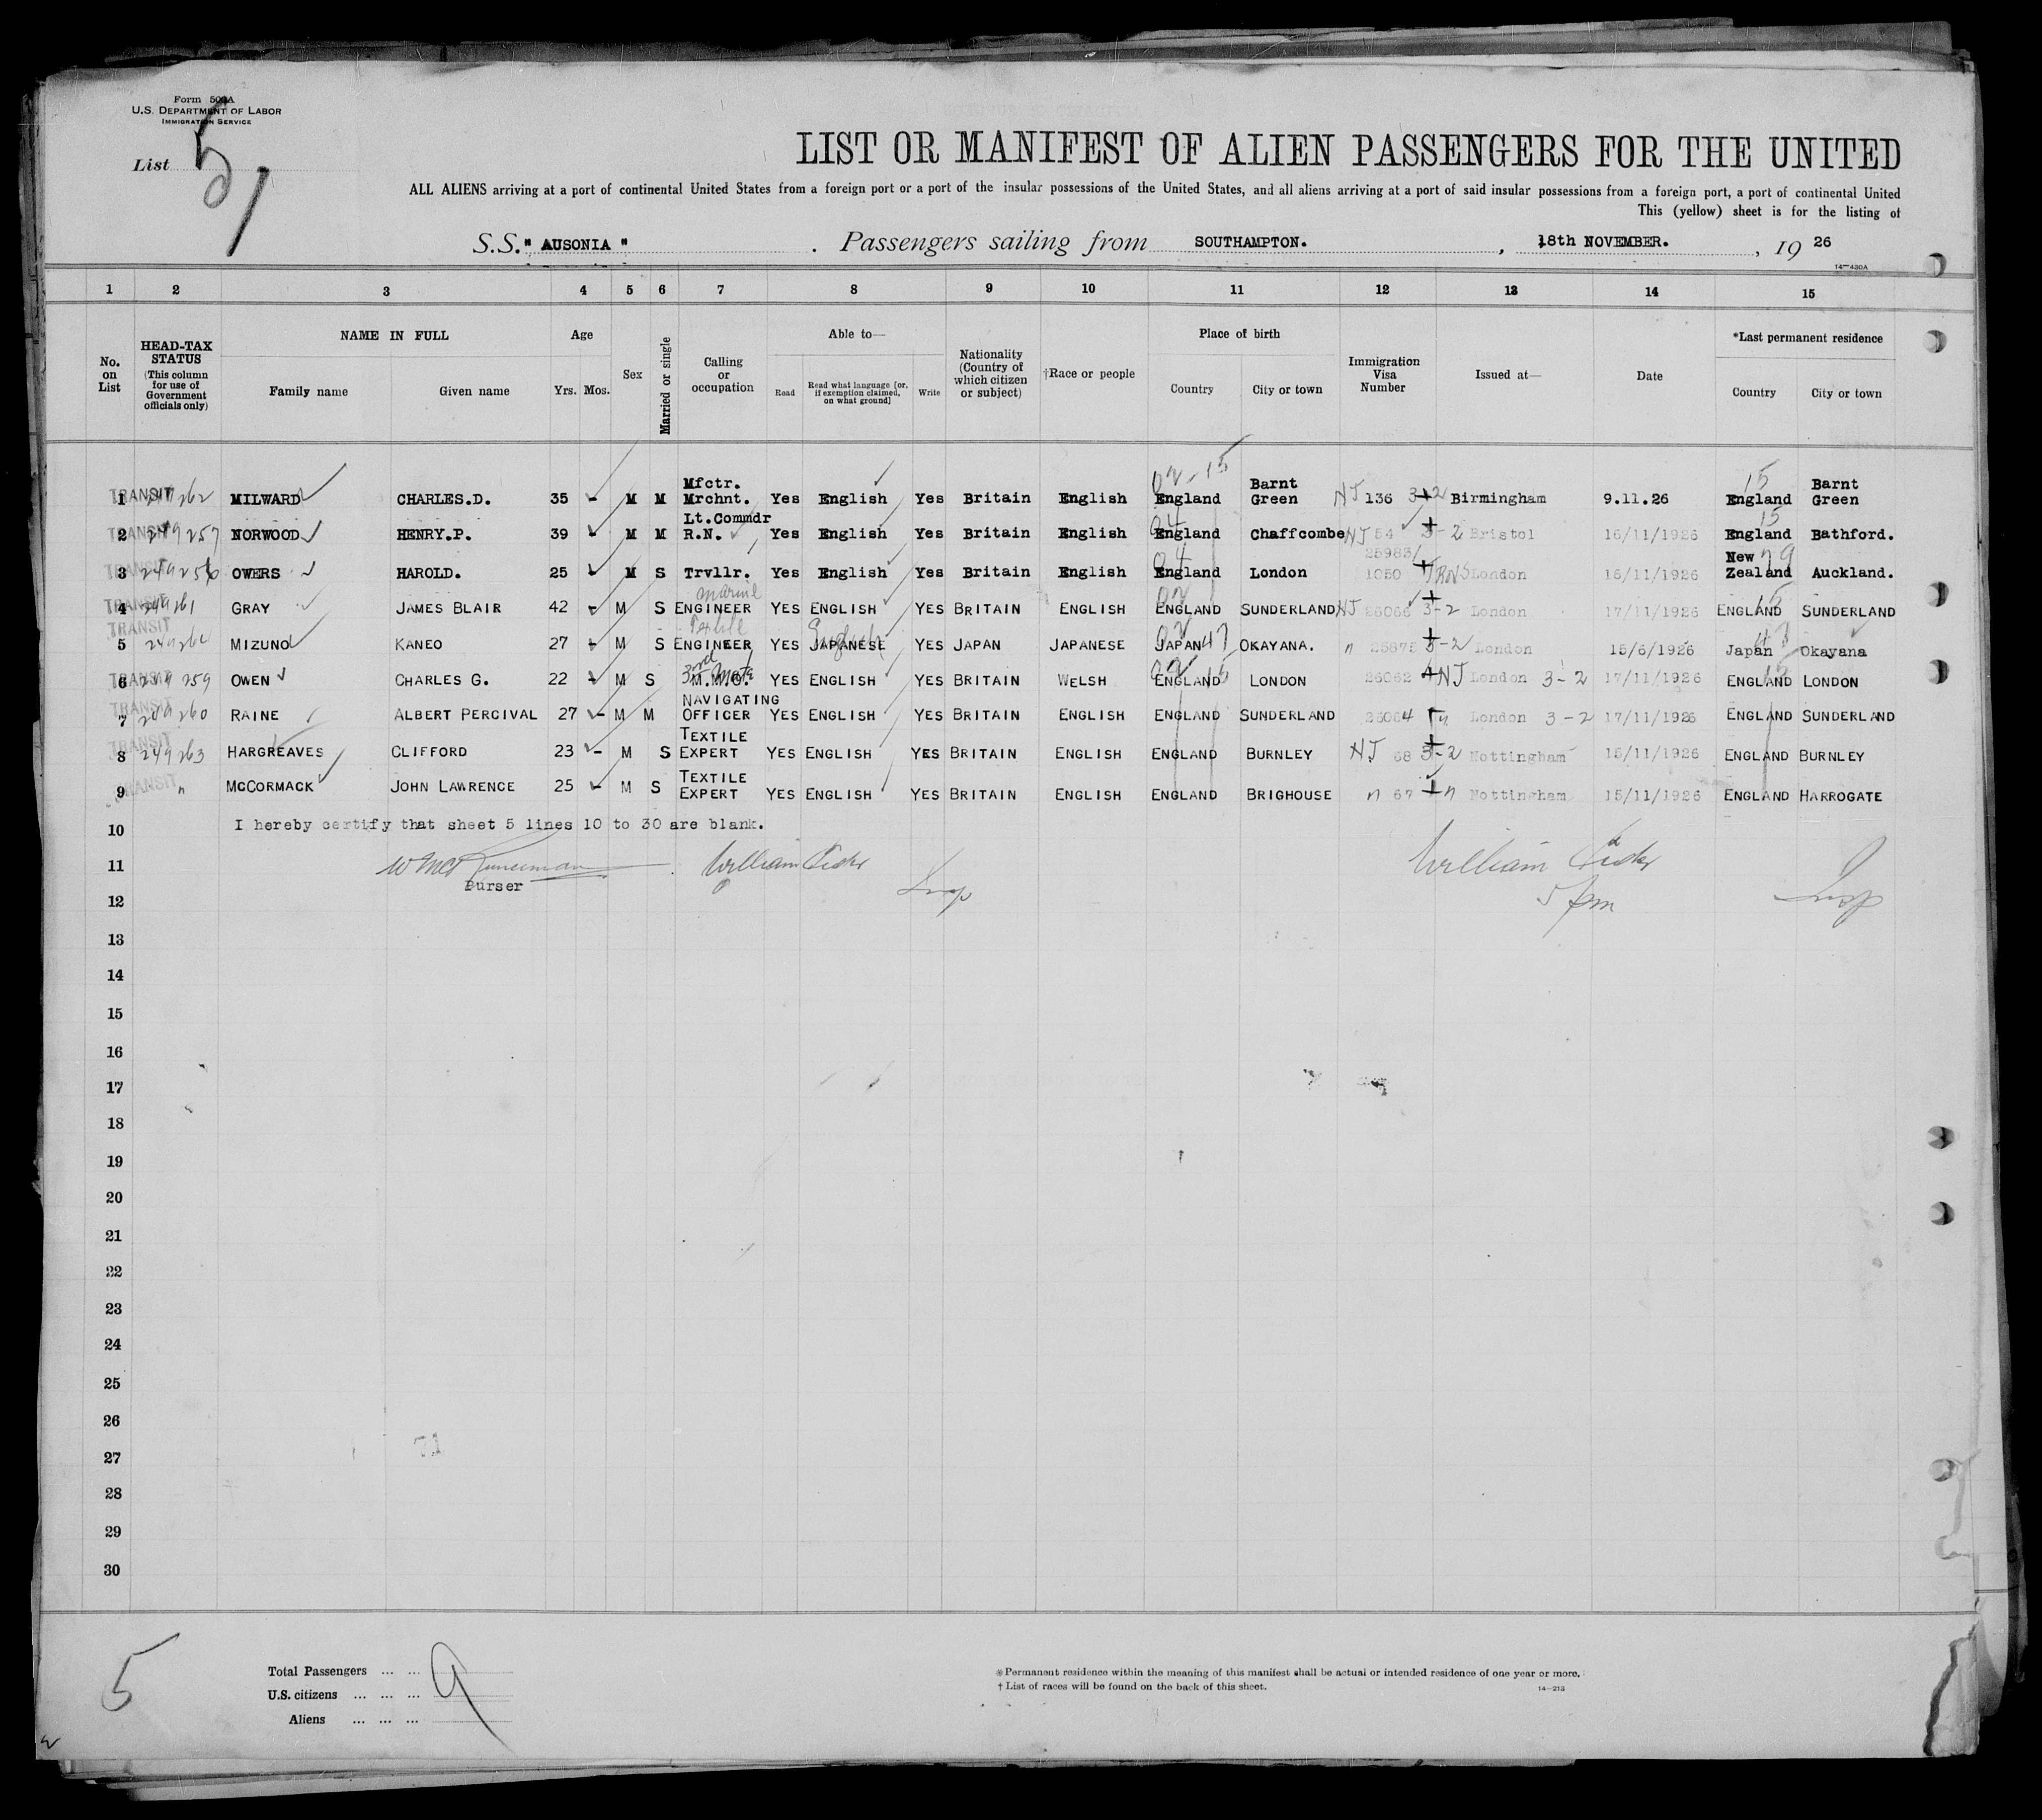 Form 500A
U.S. DEPARTMENT OF LABOR
IMMIGRATION SERVICE
List 5
LIST OR MANIFEST OF ALIEN PASSENGERS FOR THE UNITED
ALL ALIENS arriving at a port of continental United States from a foreign port or a port of the insular possessions of the United States, and all aliens arriving at a port of said insular possessions from a foreign port, a port of continental United
This (yellow) sheet is for the listing of
S.S. " AUSONIA " . Passengers sailing from SOUTHAMPTON. , 18th NOVEMBER. , 19 26
14—430A
1 2 3 4 5 6 7 8 9 10 11 12 13 14 15
No. on List
HEAD-TAX STATUS (This column for use of Government officials only)
NAME IN FULL
Family name Given name
Age
Yrs. Mos.
Sex
Married or single
Calling or occupation
Able to—
Read Read what language [or, if exemption claimed, on what ground] Write
Nationality (Country of which citizen or subject)
†Race or people
Place of birth
Country City or town
Immigration Visa Number
Issued at—
Date
*Last permanent residence
Country City or town
1 TRANSIT 249262 MILWARD CHARLES.D. 35 - M M Mfctr. Mrchnt. Yes English Yes Britain English England Barnt Green NJ 136 3-2 Birmingham 9.11.26 England Barnt Green
2 TRANSIT 249257 NORWOOD HENRY.P. 39 - M M Lt.Commdr R.N. Yes English Yes Britain English England Chaffcombe NJ 54 3-2 Bristol 16/11/1926 England Bathford.
3 TRANSIT 249256 OWERS HAROLD. 25 - M S Trvllr. Yes English Yes Britain English England London 25983/ 1050 London 16/11/1926 New Zealand Auckland.
4 TRANSIT 249261 GRAY JAMES BLAIR 42 - M S marine ENGINEER YES ENGLISH YES BRITAIN ENGLISH ENGLAND SUNDERLAND NJ 26066 3-2 London 17/11/1926 ENGLAND SUNDERLAND
5 TRANSIT MIZUNO KANEO 27 - M S Textile ENGINEER YES English JAPANESE YES JAPAN JAPANESE JAPAN OKAYANA. 25875 3-2 London 15/6/1926 Japan Okayana
6 TRANSIT 249259 OWEN CHARLES G. 22 - M S 3rd Mate YES ENGLISH YES BRITAIN WELSH ENGLAND LONDON 26062 NJ London 3-2 17/11/1926 ENGLAND LONDON
7 TRANSIT 249260 RAINE ALBERT PERCIVAL 27 - M M NAVIGATING OFFICER YES ENGLISH YES BRITAIN ENGLISH ENGLAND SUNDERLAND 26064 London 3-2 17/11/1926 ENGLAND SUNDERLAND
8 TRANSIT 249263 HARGREAVES CLIFFORD 23 - M S TEXTILE EXPERT YES ENGLISH YES BRITAIN ENGLISH ENGLAND BURNLEY NJ 68 3-2 Nottingham 15/11/1926 ENGLAND BURNLEY
9 TRANSIT " MCCORMACK JOHN LAWRENCE 25 - M S TEXTILE EXPERT YES ENGLISH YES BRITAIN ENGLISH ENGLAND BRIGHOUSE " 67 Nottingham 15/11/1926 ENGLAND HARROGATE
10 I hereby certify that sheet 5 lines 10 to 30 are blank.
11 William William
Purser
12 Insp Insp
13
14
15
16
17
18
19
20
21
22
23
24
25
26
27
28
29
30
5
Total Passengers ... ... 9
U.S. citizens ... ... ...
Aliens ... ... ...
*Permanent residence within the meaning of this manifest shall be actual or intended residence of one year or more.
† List of races will be found on the back of this sheet.
14—213